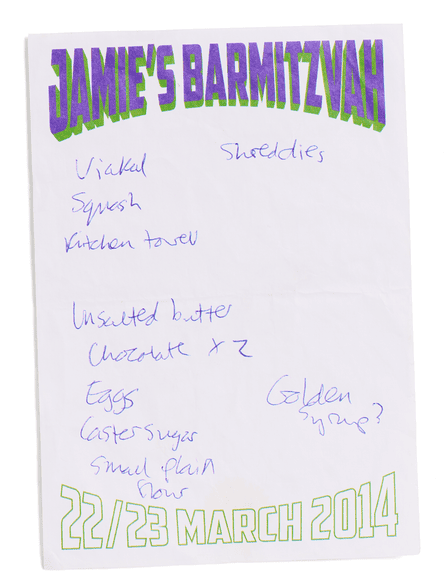 JAMIE'S BARMITZVAH
Viakal
Shreddies
Squash
Kitchen towell
Unsalted butter
Chocolate x 2
Eggs
Golden
Syrup?
Caster sugar
Small plain
flour
22/23 MARCH 2014